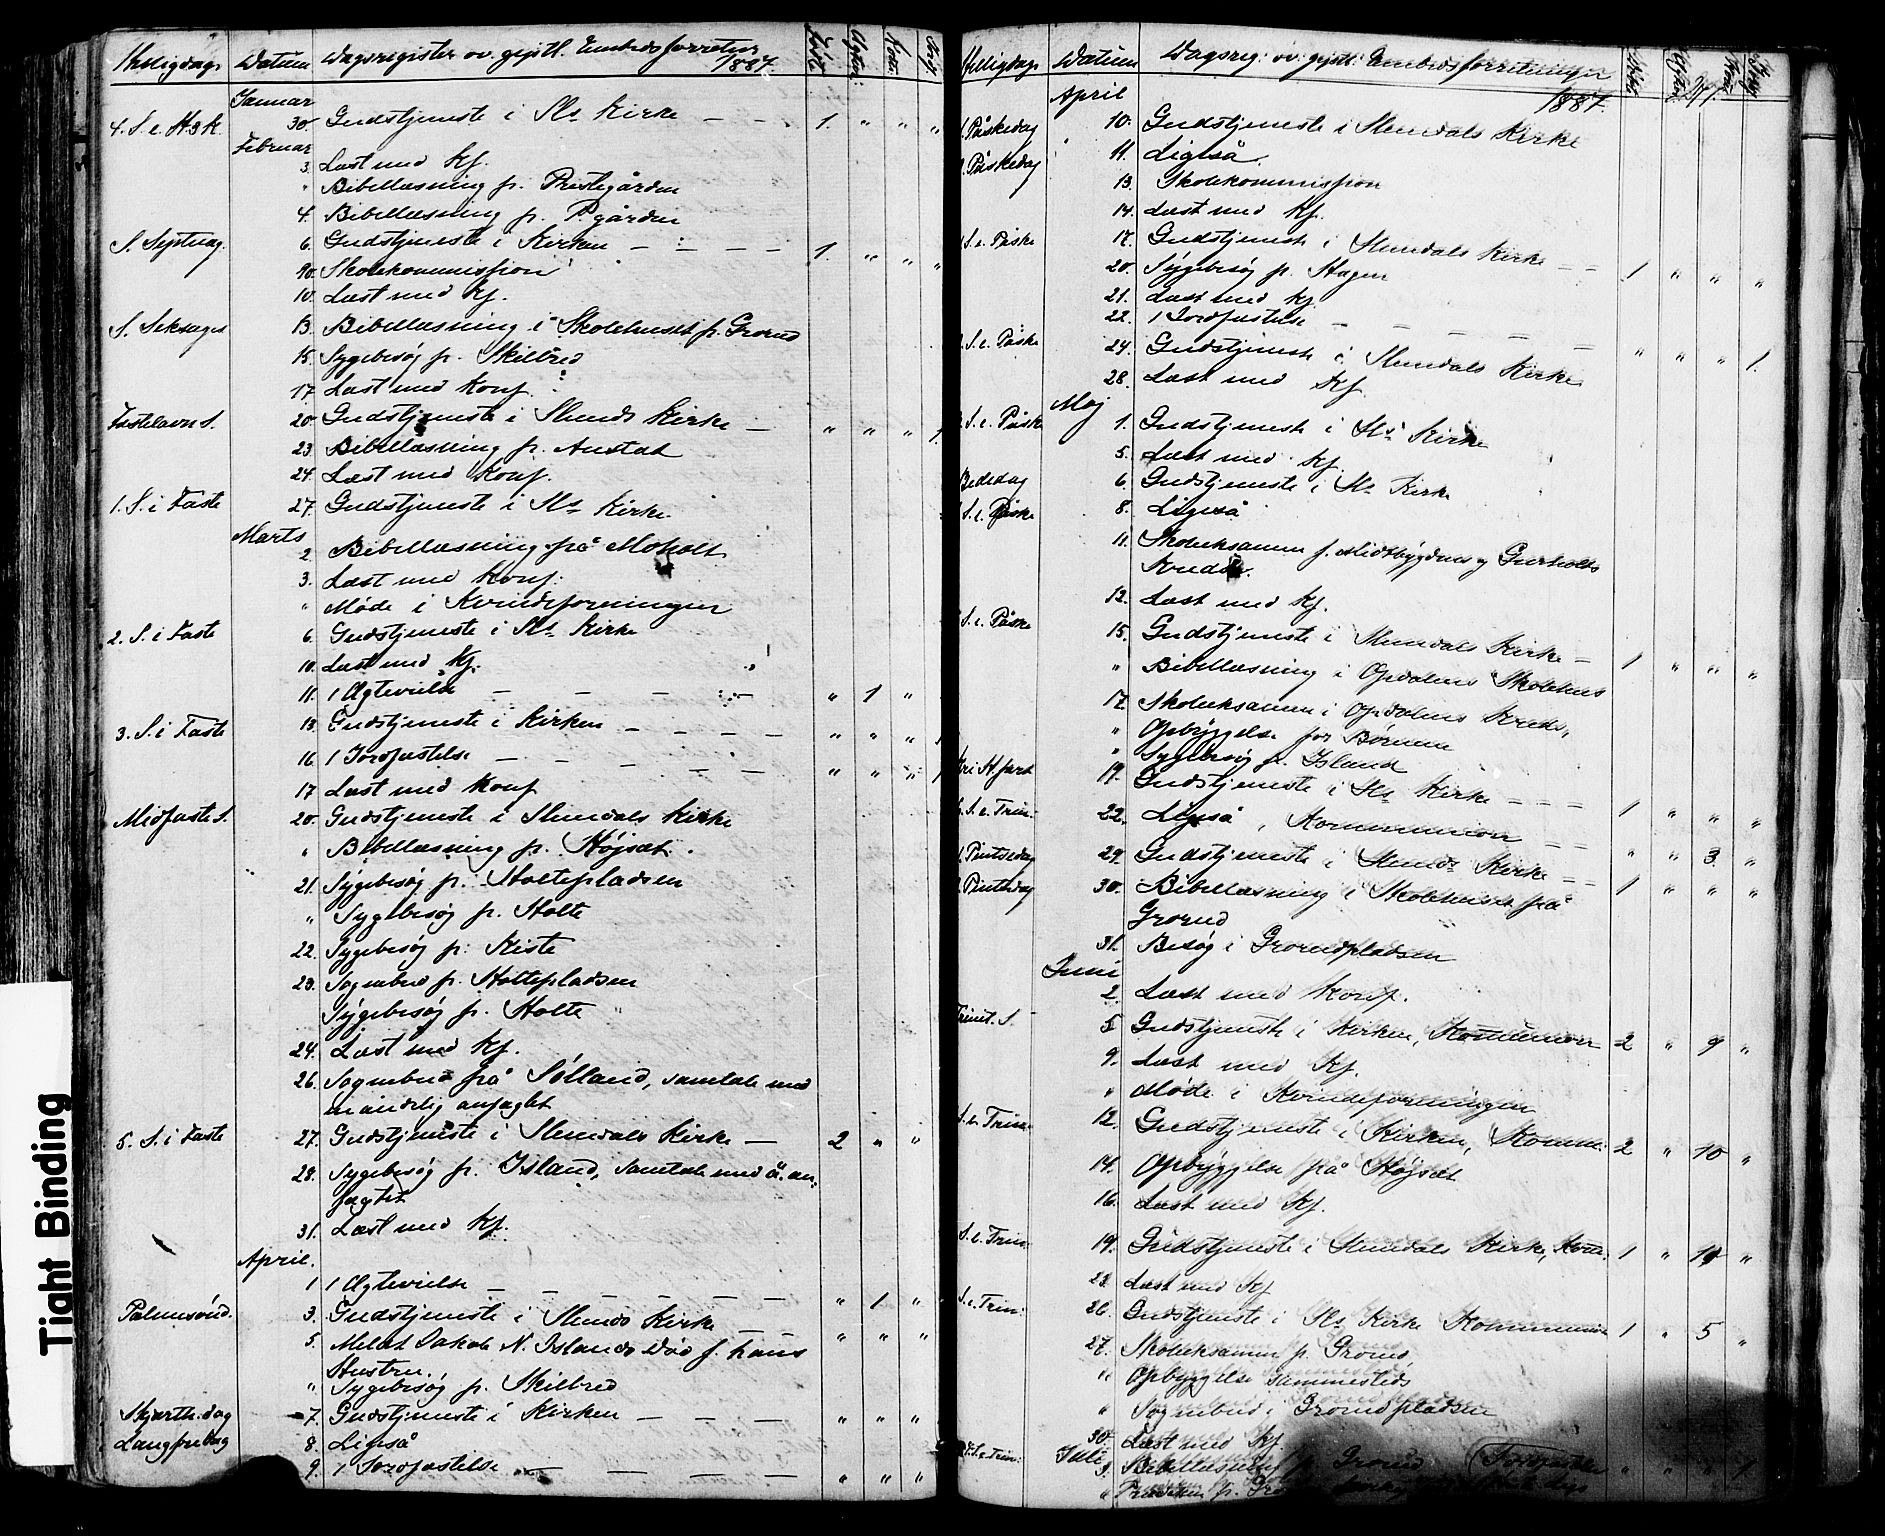 Helligdage Datum Dagsregister ov. gejstl. Embedsforretn. 1887. Døbte Ægtev. Kom. Jord.
Januar
4. S. e. H3K. 30. Gudstjeneste i Sls Kirke — — 1. " " "
Februar
3. Læst med Kf.
" Bibellæsning p. Prestegården
4. Bibellæsning p. P.gården
S. Septuag. 6. Gudstjeneste i Kirken — — — 1. " " "
10. Skolekommission
10. Læst med Kf.
S. Seksages 13. Bibellæsning i Skolehuset p. Grorud
15. Sygebesøg p. Skilbred
17. Læst med Konf.
Fastelavn S. 20. Gudstjeneste i Slemds Kirke — " " " 1.
23. Bibellæsning p. Anstat
24. Læst med Konf.
1. S. i Faste 27. Gudstjeneste i Sls Kirke.
Marts
2. Bibellæsning på Moholt
3. Læst med Konf.
" Møde i Kvindeforeningen
2. S. i Faste 6. Gudstjeneste i Sls Kirke
10. Læst med Kf.
11. 1 Ægtevielse — — — — " 1 "
3. S. i Faste 13. Gudstjeneste i Kirken — — — — " " "
16 1 Jordfæstelse — — — — — " " " 1
17 Læst med Konf
Midfaste S. 20. Gudstjeneste i Slemdals Kirke
" Bibellæsning p. Højset.
21. Sygebesøg p. Holtepladsen
" Sygebesøg p. Holte
22. Sygebesøg p. Kiste
23. Sognebud p. Holtepladsen
Sygebesøg p. Holte
24. Læst med Kf.
26. Sognebud på Sølland, samtale med
en åndelig anfægtet
5. S. i Faste 27. Gudstjeneste i Slemdals Kirke — 2 " "
28. Sygebesøg p. Island, samtale med å. an-
fægtet
31. Læst med Kf.
April.
1 1 Ægtevielse — — — — — " 1 "
Palmesønd. 3. Gudstjeneste i Slemds Kirke — " " "
5. Meldt Jakob N. Islands Død f. hans
Hustru.
" Sygebesøg p. Skilbred
Skjærth.dag 7. Gudstjeneste i Kirken — — — " " "
Langfredag 8. Ligeså
9. 1 Jordfæstelse — — — — " " "
Helligdage Datum Dagsreg. ov. gejstl. Embedsforretninger 1887. 241.
April
Påskedag 10. Gudstjeneste i Slemdals Kirke
Påskedag 11. Ligeså.
13. Skolekommission
14. Læst med Kf.
S. e. Påske 17. Gudstjeneste i Slemdals Kirke — — 1 " " "
20. Sygebesøg p. Hagen
21. Læst med Kf
22. 1 Jordfæstelse — — — — " " " 1.
S. e. Påske 24. Gudstjeneste i Slemdals Kirke
28. Læst med Kf.
Maj
S. e. Påske 1. Gudstjeneste i Sls Kirke
5. Læst med Kf
Bededag 6. Gudstjeneste i Sls Kirke
S. e. Påske 8. Ligeså
11. Skoleeksamen f. Midtbygdens og Gurholts
Kredse.
12. Læst med Kf.
S. e. Påske 15. Gudstjeneste i Slemdals Kirke — 1 " " "
" Bibellæsning i Opdalens Skolehus
17. Skoleeksamen i Opdalens Kreds,
" Opbyggelse for Børnene
" Sygebesøg p. Island
Kri H.fart 19. Gudstjeneste i Sls Kirke — — — 1 " " "
S. e. Trin. 22. Ligeså, Kommunion — — " " 3. "
Pintsedag 29. Gudstjeneste i Slemds Kirke — — 1 " " "
Pintsedag 30. Bibellæsning i Skolehuset på
Grorud
31. Besøg i Grorudpladsen
Juni
2. Læst med Konf.
Trinit. S. 5 Gudstjeneste i Kirken, Kommunion 2 " 9 "
9. Læst med Kf.
" Møde i Kvindeforeningen
S. e. Trin. 12. Gudstjeneste i Kirken, Komm. 2 " 10 "
14. Opbyggelse på Højset
16. Læst med Kf.
S. e. Trin. 19. Gudstjeneste i Slemdals Kirke, Kom. 1 " 10 "
23. Læst med Kf
S. e. Trin. 26. Gudstjeneste i Sls Kirke Kommunion 1 " 5 "
27. Skoleeksamen p. Grorud
" Opbyggelse sammesteds
" Sognebud i Grorudpladsen
30. Læst med Kf
S. e. Trin. Juli 3. Bibellæsning p. Grorud Jordfæstelse " " " 1
Tight Binding